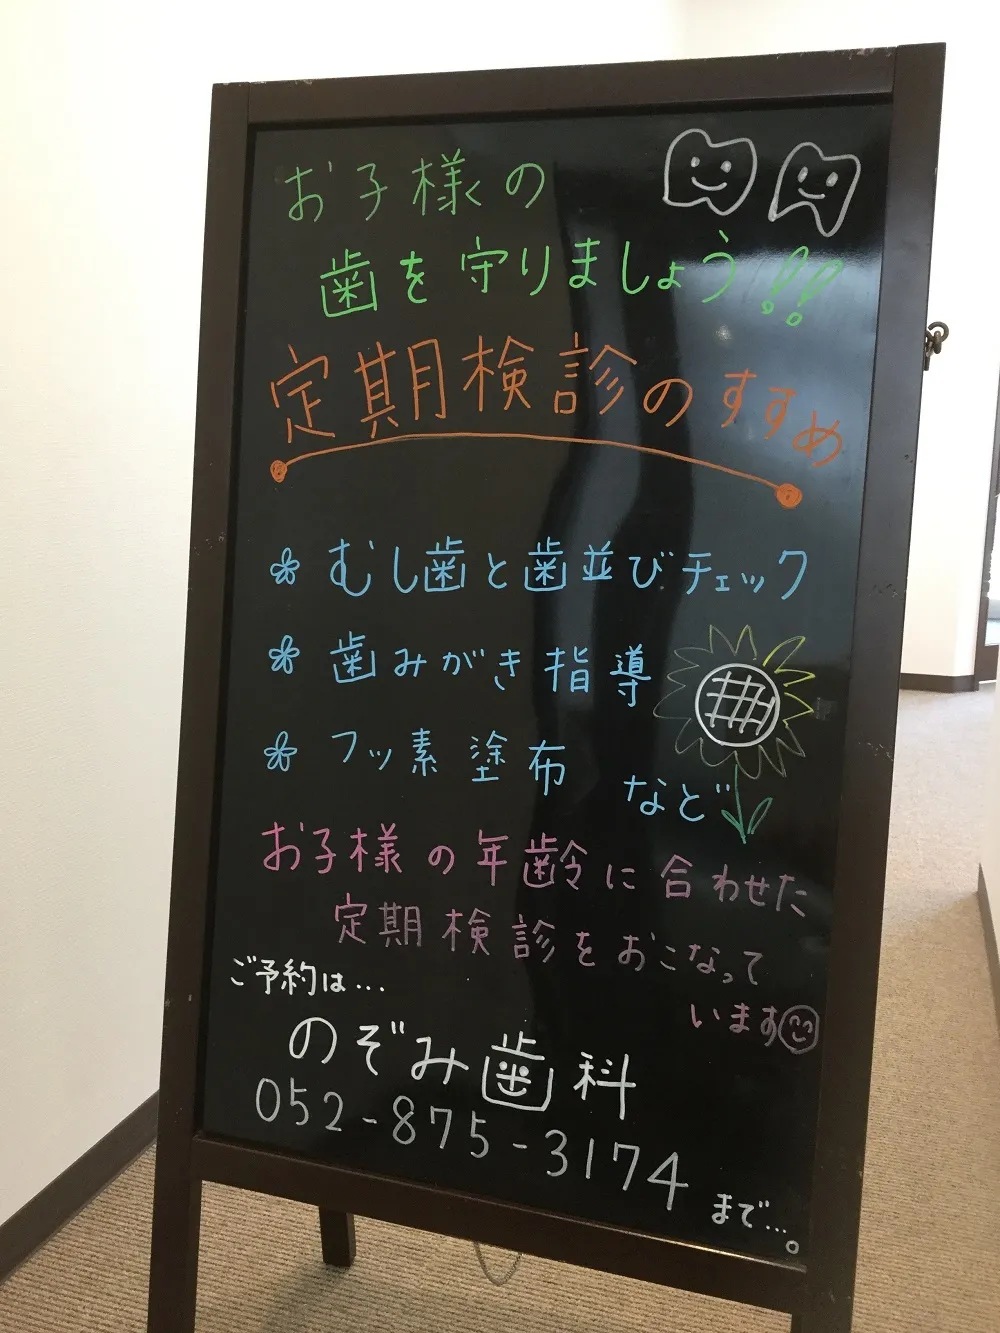 お子様の
歯を守りましょう!!
定期検診のすすめ
むし歯と歯並びチェック
歯みがき指導
フッ素塗布 など
お子様の年齢に合わせた
定期検診をおこなって
います
ご予約は…
のぞみ歯科
052-875-3174
まで…。